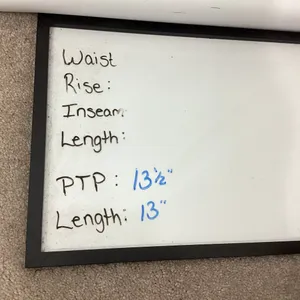 Waist
Rise:
Inseam
Length:
PTP: 13½"
Length: 13"